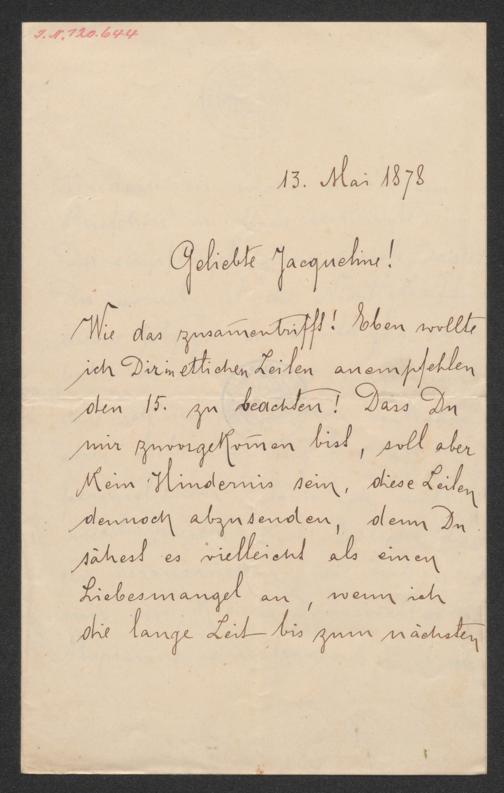 I.N. 120.644
13. Mai 1878
Geliebte Jacqueline!
Wie das zusam̄entrifft! Eben wollte
ich Dir in etlichen Zeilen anempfehlen
den 15. zu beachten! Dass Du
mir zuvorgekom̄en bist, soll aber
kein Hindernis sein, diese Zeilen
dennoch abzusenden, denn Du
sähest es vielleicht als einen
Liebesmangel an, wenn ich
die lange Zeit bis zum nächsten